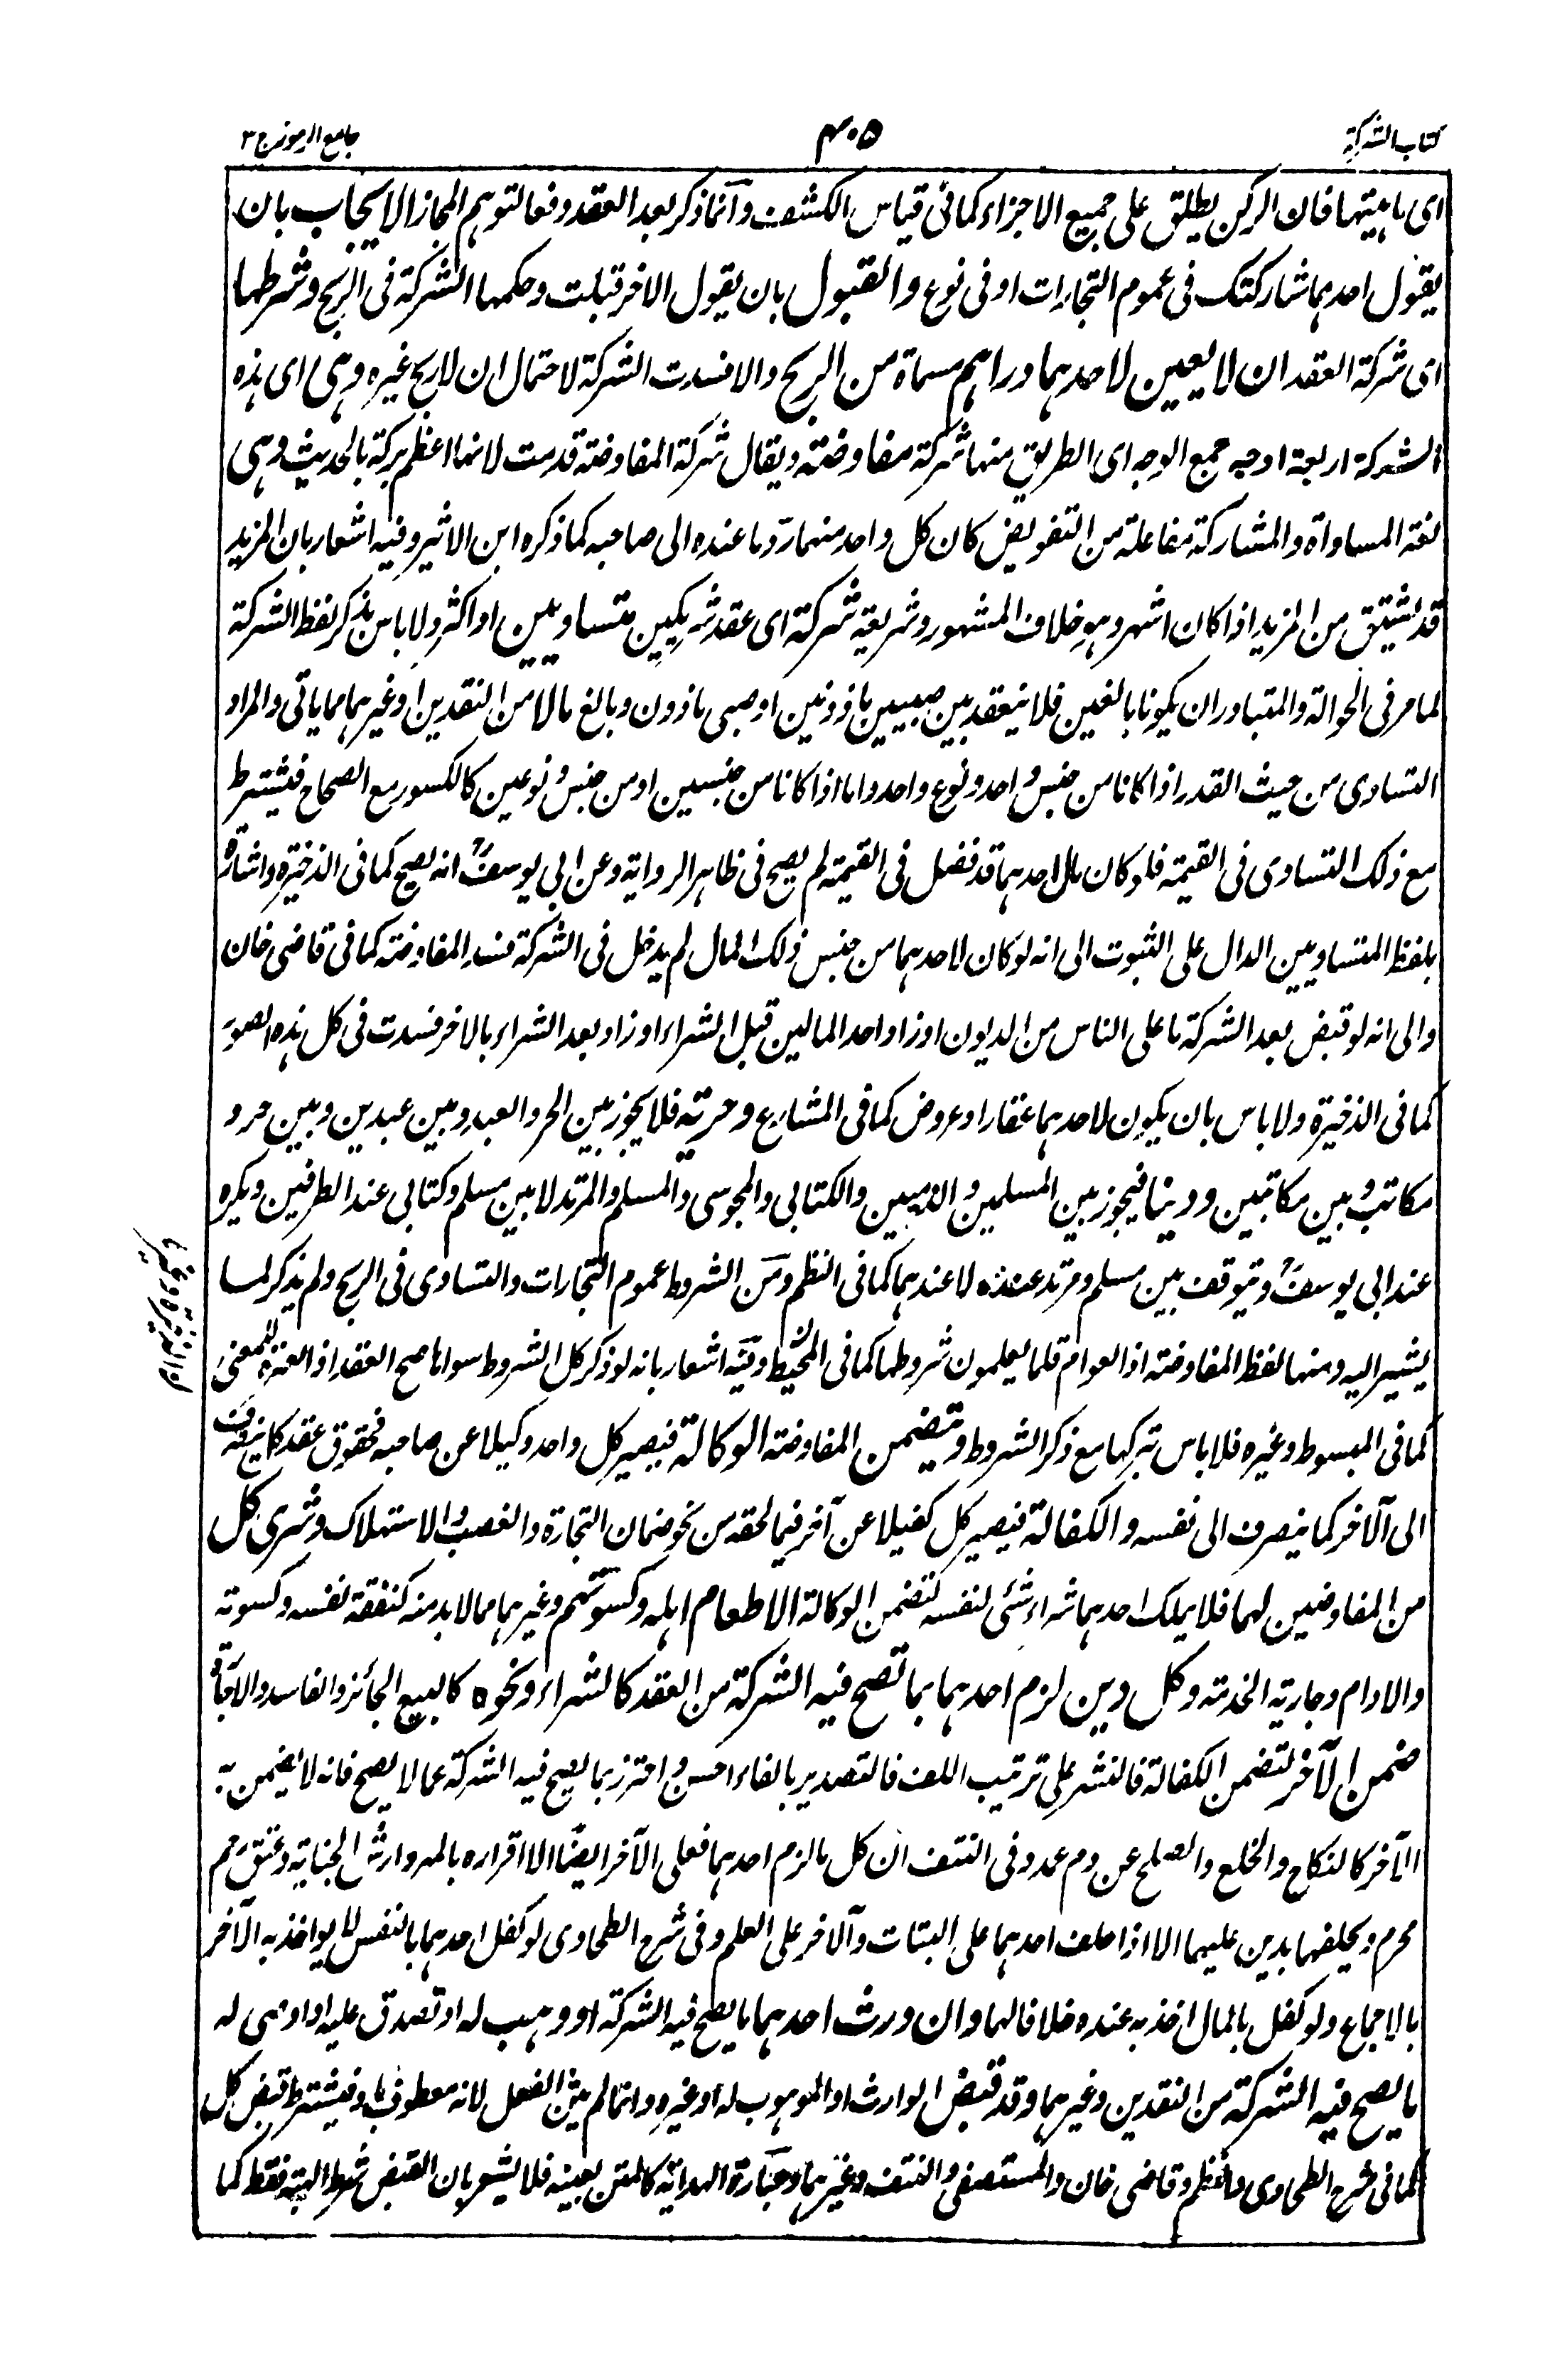 كتاب الشركة
٤٠٥
جامع الرموز ج ٣
اى ماهيتها فان الركن يطلق على جميع الاجزاء كما فى قياس الكشف وانما ذكر بعد العقد دفعا لتوهم المجاز الايجاب بان
يقول احدهما شاركتك فى عموم التجارات او فى نوع والقبول بان يقول الاخر قبلت وحكمها الشركة فى الربح وشرطها
اى شركة العقد ان لا يعين لاحدهما دراهم مسماة من الربح والا فسدت الشركة لاحتمال ان لا ربح غيره وهى اى هذه
الشركة اربعة اوجه جمع الوجه اى الطريق منها شركة مفاوضة ويقال شركة المفاوضة قدمت لانها اعظم بركة بالحديث وهى
لغة المساواة والمشاركة مفاعلة من التفويض كان كل واحد منهما رد ما عنده الى صاحبه كما ذكره ابن الاثير وفيه اشعار بان المزيد
قد اشتق من المزيد اذا كان اشهر وهو خلاف المشهور وشريعة شركة اى عقد شريكين متساويين او اكثر ولا باس بذكر لفظ الشركة
لما مر فى الحوالة والمتبادر ان يكونا بالغين فلا ينعقد بين صبيين ماذونين او صبى ماذون وبالغ مالا من النقدين او غيرهما مما ياتى والمراد
التساوى من حيث القدر اذا كانا من جنس واحد ونوع واحد واما اذا كانا من جنسين او من جنس ونوعين كالكسور مع الصحاح فيشترط
مع ذلك التساوى فى القيمة فلو كان مال احدهما قد فضل فى القيمة لم يصح فى ظاهر الرواية وعن ابى يوسف انه يصح كما فى الذخيرة واشارة
بلفظ المتساويين الدال على الثبوت الى انه لو كان لاحدهما من جنس ذلك المال لم يدخل فى الشركة فسد المفاوضة كما فى قاضى خان
والى انه لو قبض بعد الشركة ما على الناس من الديون او زاد احد المالين قبل الشراء او زاد بعد الشراء بالاخر فسدت فى كل هذه الصور
كما فى الذخيرة ولا باس بان يكون لاحدهما عقار او عروض كما فى المشارع وحرية فلا يجوز بين الحر والعبد وبين عبدين وبين حر و
مكاتب وبين مكاتبين ودينا فيجوز بين المسلمين والذميين والكتابى والمجوسى والمسلم والمرتد لا بين مسلم وكتابى عند الطرفين ويكره
عند ابى يوسف ويتوقف بين مسلم ومرتد عنده لا عندهما كما فى النظم ومن الشروط عموم التجارات والتساوى فى الربح ولم يذكر لما
يشير اليه ومنها لفظ المفاوضة اذ العوام قلما يعلمون شروطها كما فى المحيط وفيه اشعار بانه لو ذكر كل الشروط سواها صح العقد اذ العبرة للمعنى
كما فى المبسوط وغيره فلا باس بتركها مع ذكر الشروط وتتضمن المفاوضة الوكالة فيصير كل واحد وكيلا عن صاحبه فحقوق عقد كل ينصرف
الى الآخر كما ينصرف الى نفسه والكفالة فيصير كل كفيلا عن آخر فيما لحقه من نحو ضمان التجارة والغصب والاستهلاك وشرى كل
من المفاوضين لهما فلا يملك احدهما شراء شئى لنفسه لتضمن الوكالة الا طعام اهله وكسوتهم وغيرهما مما لا بد منه كنفقة نفسه وكسوته
والادام وجارية الخدمة وكل دين لزم احدهما بما تصح فيه الشركة من العقد كالشراء ونحوه كالبيع الجائز والفاسد والاجارة
ضمن الآخر لتضمن الكفالة فالنشر على ترتيب اللف فالتصدير بالفاء احسن واحترز بما يصح فيه الشركة عما لا يصح فانه لا يضمن به
الآخر كالنكاح والخلع والصلح عن دم عمد وفى النتف ان كل ما لزم احدهما فعلى الآخر ايضا الا اقراره بالمهر وارش الجناية وعتق رحم
محرم ويحلفهما بدين عليهما الا اذا حلف احدهما على البتات والاخر على العلم وفى شرح الطحاوى لو كفل احدهما بالنفس لا يواخذ به الآخر
بالاجماع ولو كفل بالمال اخذ به عنده خلافا لهما وان ورث احدهما ما يصح فيه الشركة او وهب له او تصدق عليه او اوصى له
ما يصح فيه الشركة من النقدين وغيرهما وقد قبض الوارث او الموهوب له او غيره وانما لم يثن الفعل لانه معطوف باو فيشترط قبض كل
كما فى شرح الطحاوى والنظم وقاضى خان والمستصفى والنتف وغيرهما وعبارة الهداية كالمتن بعينه فلا يشعر بان القبض شرط الهبة فقط كما